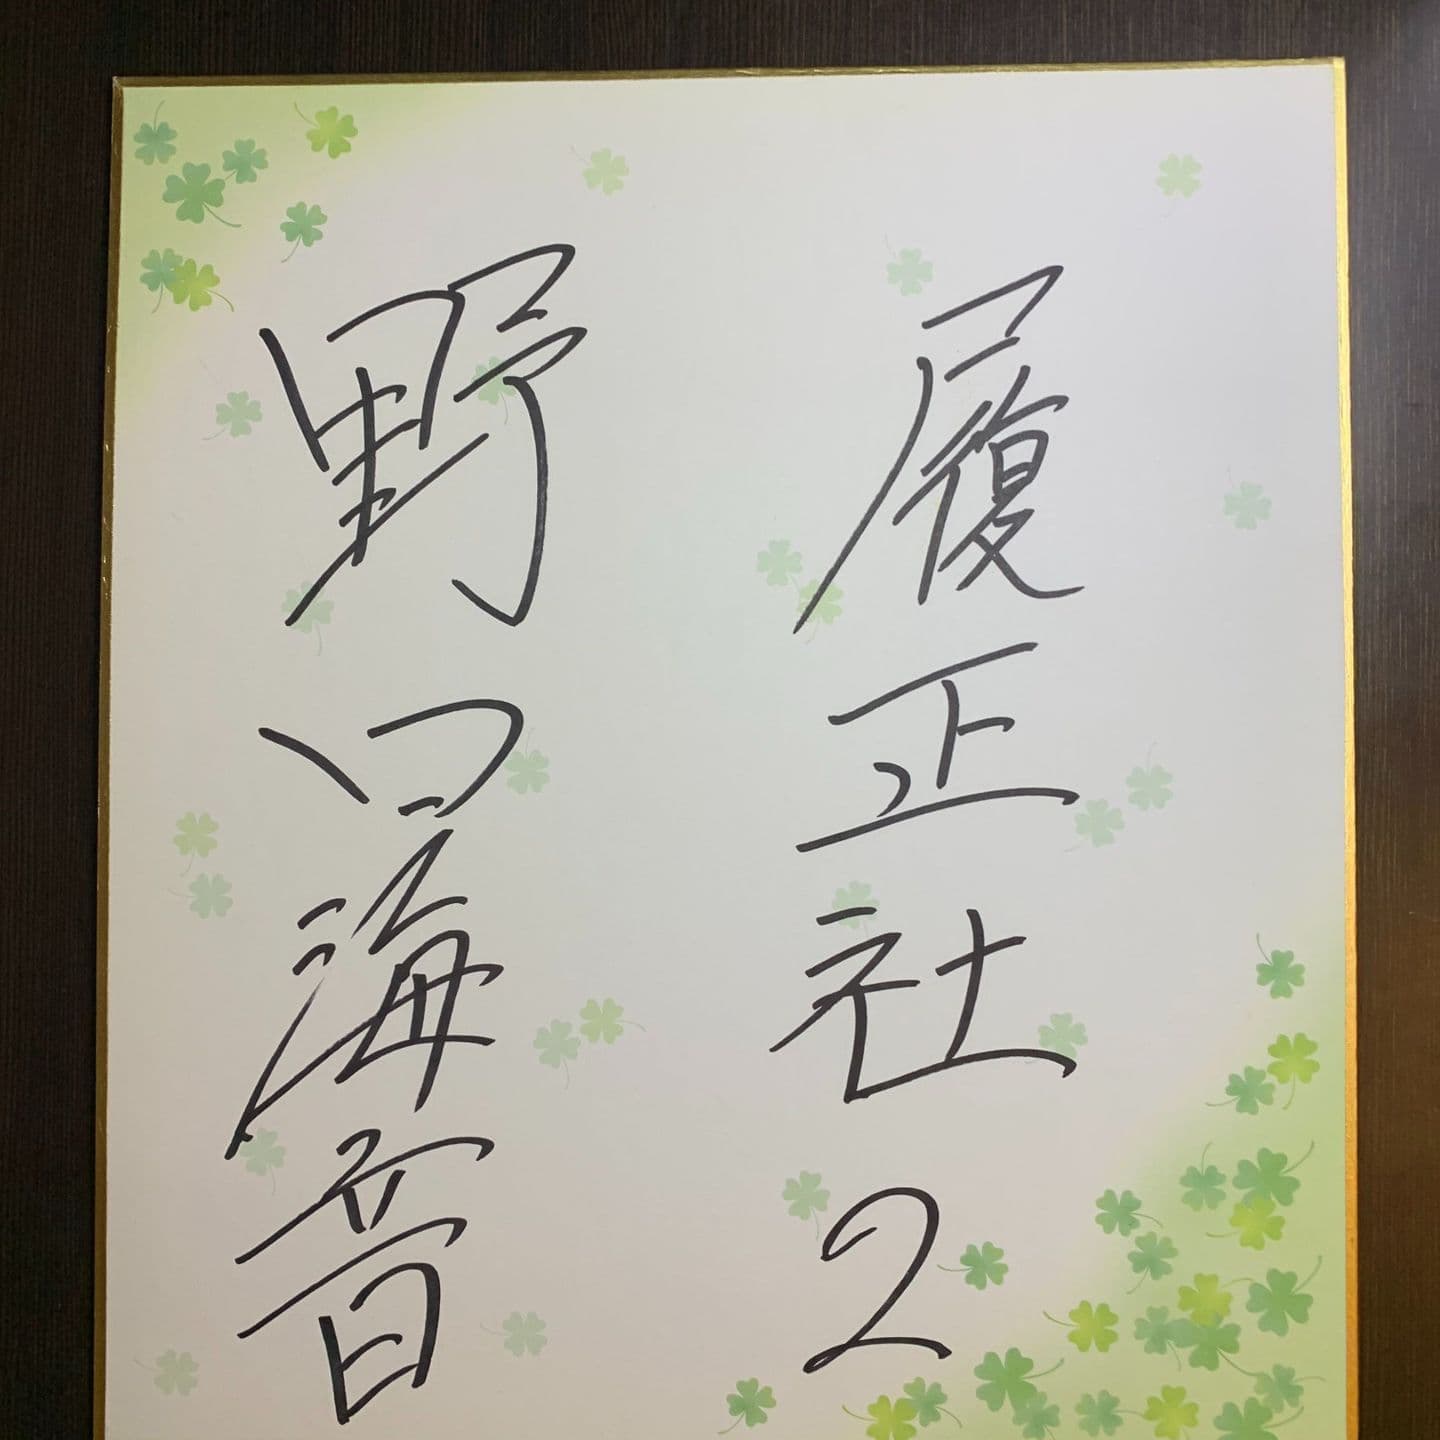 履正社2
野口海音